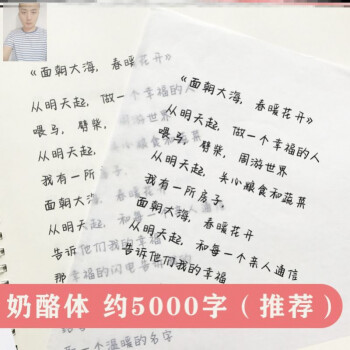 《面朝大海，春暖花开》
从明天起，做一个幸福的人
喂马，劈柴，
从明天起，
我有一所房子，
面朝大海，春暖花开
从明天起，和每一个亲人
告诉他们我的幸福
那幸福的闪电告诉我的
《面朝大海，春暖花开》
从明天起，做一个幸福的人
喂马，劈柴，周游世界
从明天起，关心粮食和蔬菜
我有一所房子，
面朝大海，春暖花开
从明天起，和每一个亲人通信
告诉他们我的幸福
奶酪体 约5000字（推荐）
一个温暖的名字